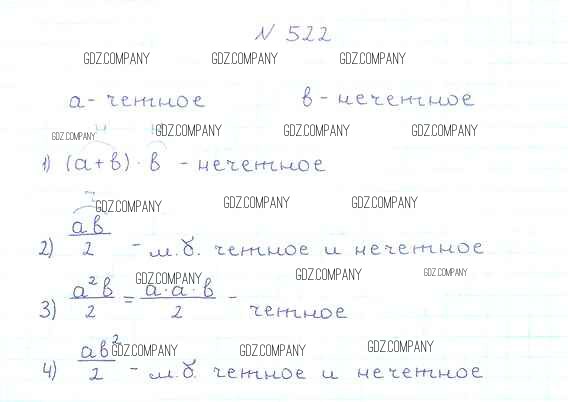 N 522
GDZ.COMPANY GDZ.COMPANY GDZ.COMPANY
а - четное в - нечетное
GDZ.COMPANY GDZ.COMPANY GDZ.COMPANY GDZ.COMPANY
1) (а+в) · в - нечетное
GDZ.COMPANY GDZ.COMPANY GDZ.COMPANY
2) ав/2 - м.б. четное и нечетное
GDZ.COMPANY GDZ.COMPANY GDZ.COMPANY
3) а²в/2 = а·а·в/2 - четное
GDZ.COMPANY GDZ.COMPANY GDZ.COMPANY
4) ав²/2 - м.б. четное и нечетное